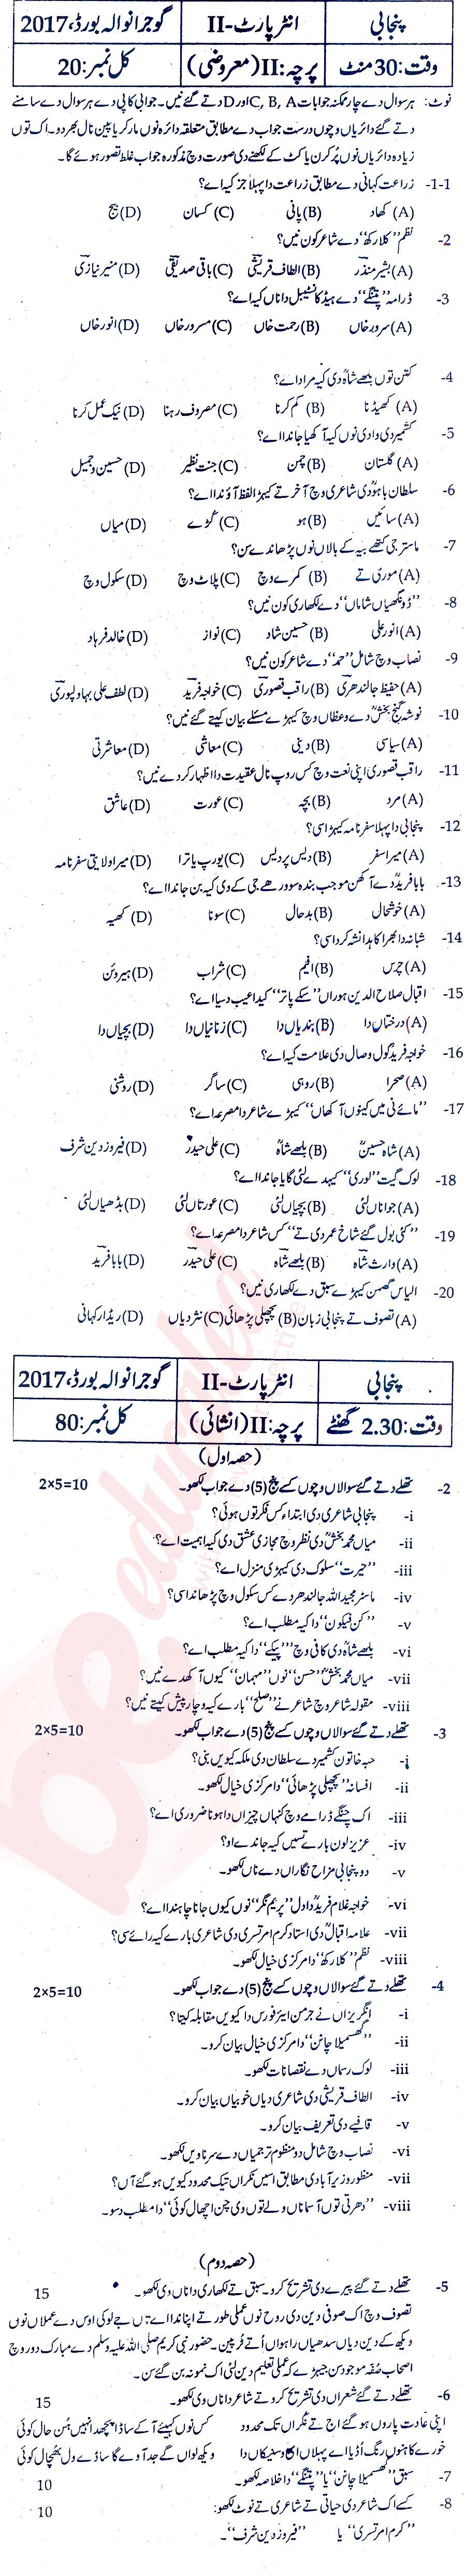 پنجابی انٹر پارٹ-II گوجرانوالہ بورڈ، 2017
وقت: 30 منٹ پرچہ: II (معروضی) کل نمبر: 20
نوٹ: ہر سوال دے چار ممکنہ جوابات C, B, A اور D دتے گئے نیں۔ جوابی کاپی دے ہر سوال دے سامنے
دتے گئے دائریاں وچوں درست جواب دے مطابق متعلقہ دائرہ نوں مارکر یا پین نال بھر دو۔ اک توں
زیادہ دائریاں نوں پُر کرن یا کٹ کے لکھنے دی صورت وچ مذکورہ جواب غلط تصور ہوئے گا۔
1-1- زراعت کہانی دے مطابق زراعت دا پہلا جز کیہ اے؟
(A) کھاد (B) پانی (C) کسان (D) بیج
2- نظم ”کلا رکھ“ دے شاعر کون نیں؟
(A) بشیر منذر (B) الطاف قریشی (C) باقی صدیقی (D) منیر نیازی
3- ڈرامہ ”پتنگے“ دے ہیڈ کانسٹیبل دا ناں کیہ اے؟
(A) سرور خاں (B) رحمت خاں (C) مسرور خاں (D) انور خاں
4- کتن توں بلھے شاہؒ دی کیہ مراد اے؟
(A) کھیڈنا (B) کم کرنا (C) مصروف رہنا (D) نیک عمل کرنا
5- کشمیر دی وادی نوں کیہ آکھیا جاندا اے؟
(A) گلستان (B) چمن (C) جنت نظیر (D) حسین و جمیل
6- سلطان باہوؒ دی شاعری وچ آخر تے کیہڑا لفظ آؤندا اے؟
(A) سائیں (B) ہو (C) گڑے (D) میاں
7- ماسٹر جی کتھے بیہ کے بالاں نوں پڑھاندے سن؟
(A) موری تے (B) کمرے وچ (C) پلاٹ وچ (D) سکول وچ
8- ”ڈونگھیاں شاماں“ دے لکھاری کون نیں؟
(A) انور علی (B) حسین شاد (C) نواز (D) خالد فرہاد
9- نصاب وچ شامل ”حمد“ دے شاعر کون نیں؟
(A) حفیظ جالندھری (B) راقب قصوری (C) خواجہ فرید (D) لطف علی بہاولپوری
10- نوشہ گنج بخشؒ دے وعظاں وچ کیہڑے مسئلے بیان کیتے گئے نیں؟
(A) سیاسی (B) دینی (C) معاشی (D) معاشرتی
11- راقب قصوری اپنی نعت وچ کس روپ نال عقیدت دا اظہار کردے نیں؟
(A) مرد (B) بچہ (C) عورت (D) عاشق
12- پنجابی دا پہلا سفر نامہ کیہڑا سی؟
(A) میرا سفر (B) دیس پردیس (C) یورپ یاترا (D) میرا ولایتی سفر نامہ
13- بابا فریدؒ دے آکھن موجب بندہ سو ورھے جی کے وی کیہ بن جاندا اے؟
(A) خوشحال (B) بدحال (C) سونا (D) کھیہ
14- شبانہ دا بھرا کاہدا نشہ کردا سی؟
(A) چرس (B) افیم (C) شراب (D) ہیروئن
15- اقبال صلاح الدین ہوراں ”سکے پاتر“ کیدا عیب دسیا اے؟
(A) درختاں دا (B) بندیاں دا (C) زنانیاں دا (D) بچیاں دا
16- خواجہ فریدؒ کول وصال دی علامت کیہ اے؟
(A) صحرا (B) روہی (C) ساگر (D) روشنی
17- ”مائے نی میں کینوں آکھاں“ کیہڑے شاعر دا مصرعہ اے؟
(A) شاہ حسینؒ (B) بلھے شاہؒ (C) علی حیدر (D) فیروز دین شرف
18- لوک گیت ”لوری“ کیہدے لئی گایا جاندا اے؟
(A) جواناں لئی (B) بچیاں لئی (C) عورتاں لئی (D) بڈھیاں لئی
19- ”کئی بول گئے شاخ عمر دی تے“ کس شاعر دا مصرعہ اے؟
(A) وارث شاہ (B) بلھے شاہ (C) علی حیدر (D) بابا فرید
20- الیاس گھمن کیہڑے سبق دے لکھاری نیں؟
(A) تصوف تے پنجابی زبان (B) پچھلی پڑھائی (C) نثر دیاں (D) ریڈار کہانی
پنجابی انٹر پارٹ-II گوجرانوالہ بورڈ، 2017
وقت: 2.30 گھنٹے پرچہ: II (انشائی) کل نمبر: 80
(حصہ اول)
2- تھلے دتے گئے سوالاں وچوں کسے پنج (5) دے جواب لکھو۔ 2×5=10
i- پنجابی شاعری دی ابتداء کس فکر توں ہوئی؟
ii- میاں محمد بخشؒ دی نظر وچ مجازی عشق دی کیہ اہمیت اے؟
iii- ”حیرت“ سلوک دی کیہڑی منزل اے؟
iv- ماسٹر مجید اللہ جالندھر دے کس سکول وچ پڑھاندا سی؟
v- ”کن فیکون“ دا کیہ مطلب اے؟
vi- بلھے شاہؒ دی کافی وچ ”پیکے“ دا کیہ مطلب اے؟
vii- میاں محمد بخشؒ ”حسن“ نوں ”مہمان“ کیوں آکھدے نیں؟
viii- مقولہ شاعر وچ شاعر نے ”صلح“ بارے کیہ وچار پیش کیتے نیں؟
3- تھلے دتے گئے سوالاں وچوں کسے پنج (5) دے جواب لکھو۔ 2×5=10
i- حبہ خاتون کشمیر دے سلطان دی ملکہ کیویں بنی؟
ii- افسانہ ”پچھلی پڑھائی“ دا مرکزی خیال لکھو۔
iii- اک چنگے ڈرامے وچ کنہاں چیزاں دا ہونا ضروری اے؟
iv- عزیز لون بارے تسیں کیہ جاندے او؟
v- دو پنجابی مزاح نگاراں دے ناں لکھو۔
vi- خواجہ غلام فریدؒ دا دل ”پریم نگر“ نوں کیوں جانا چاہندا اے؟
vii- علامہ اقبالؒ دی استاد کرم امرتسری دی شاعری بارے کیہ رائے سی؟
viii- نظم ”کلا رکھ“ دا مرکزی خیال لکھو۔
4- تھلے دتے گئے سوالاں وچوں کسے پنج (5) دے جواب لکھو۔ 2×5=10
i- انگریزاں نے جرمن ایئر فورس دا کیویں مقابلہ کیتا؟
ii- ”گھسمیلا چانن“ دا مرکزی خیال بیان کرو۔
iii- لوک رسماں دے نقصانات لکھو۔
iv- الطاف قریشی دی شاعری دیاں خوبیاں بیان کرو۔
v- قافیے دی تعریف بیان کرو۔
vi- نصاب وچ شامل دو منظوم ترجمیاں دے سرناویں لکھو۔
vii- منظور وزیر آبادی مطابق اسیں نگراں تیک محدود کیویں ہو گئے آں؟
viii- ”دھرتی توں آسماناں ولے توں وی چن اچھال کوئی“ دا مطلب دسو۔
(حصہ دوم)
5- تھلے دتے گئے پیرے دی تشریح کرو۔ سبق تے لکھاری دا ناں وی لکھو۔ 15
تصوف وچ اک صوفی دین دی روح نوں عملی طور تے اپناندا اے تاں جے لوکی اوس دے عملاں نوں
ویکھ کے دین دیاں سدھیاں راہواں اُتے ٹر پین۔ حضور نبی کریم صلی اللہ علیہ وسلم دے مبارک دور وچ
اصحاب صُفہ موجود سن جیہڑے کہ عملی تعلیم دین لئی اک نمونہ بن گئے سن۔
6- تھلے دتے گئے شعراں دی تشریح کرو تے شاعر دا ناں وی لکھو۔ 15
اپنی عادت پاروں ہو گئے آج تے نگراں تک محدود کس نوں کیہئے آ کے ساڈا پچھدا نہیں ہُن حال کوئی
خورے کاہنوں رنگ اُڈیا اے پہلاں ای وسنیکاں دا ویکھ لواں گے جد آوے گا ساڈے ول بھُچال کوئی
7- سبق ”گھسمیلا چانن“ یا ”پتنگے“ دا خلاصہ لکھو۔ 10
8- کسے اک شاعر دی حیاتی تے شاعری تے نوٹ لکھو: 10
”کرم امرتسری“ یا ”فیروز دین شرف“۔